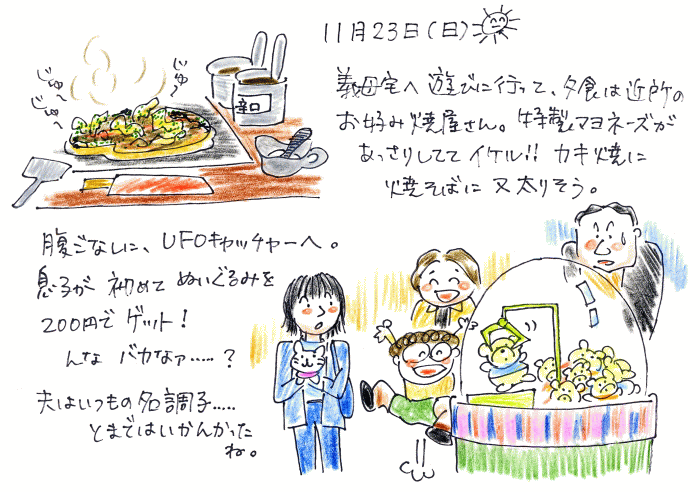 11月23日(日)
義母宅へ遊びに行って、夕食は近所の
お好み焼屋さん。特製マヨネーズが
あっさりしててイケル!! カキ焼に
焼そばに又太りそう。
じゅ〜
じゅ〜
じゅ〜
辛口
腹ごなしに、UFOキャッチャーへ。
息子が初めてぬいぐるみを
200円でゲット!
んなバカなァ.....?
夫はいつもの名調子.....
とまではいかんかった
ね。